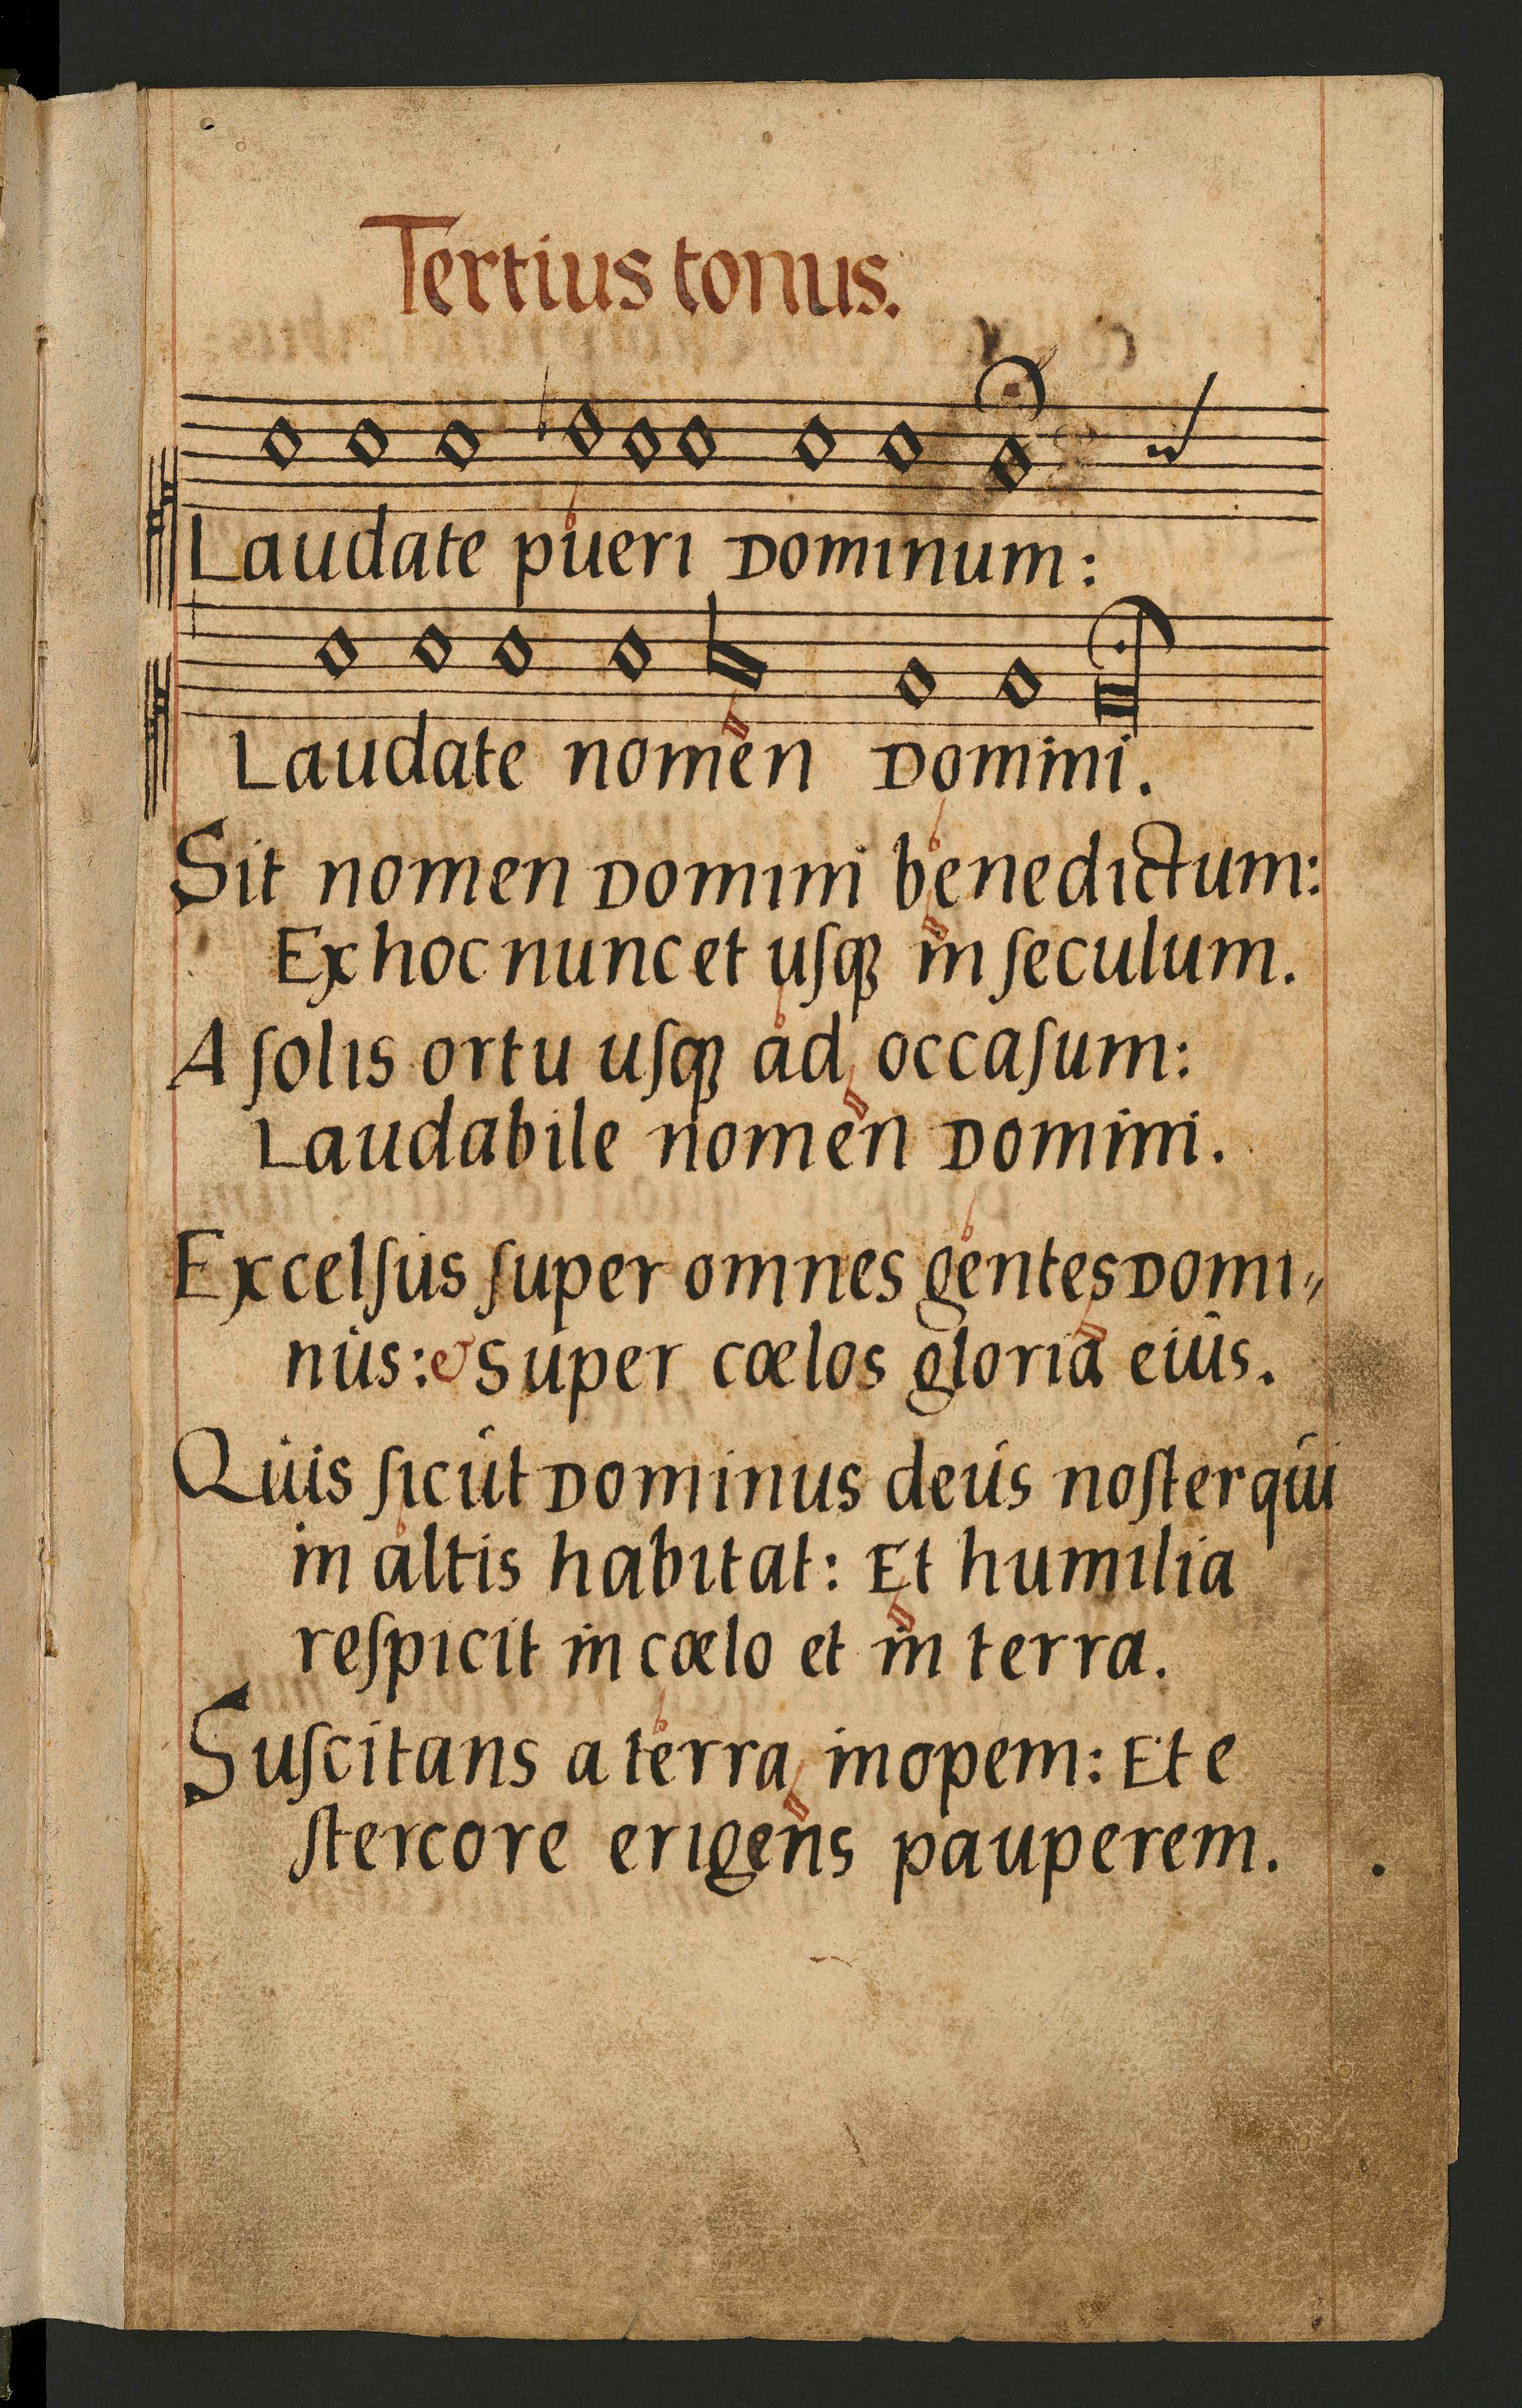 Tertius tonus.
Laudate pueri Dominum:
Laudate nomen Domini.
Sit nomen Domini benedictum:
Ex hoc nunc et uſqꝫ in ſeculum.
A ſolis ortu uſqꝫ ad occaſum:
Laudabile nomen Domini.
Excelſus ſuper omnes gentes Domi⸗
nus: & Super cœlos gloria eius.
Quis ſicut Dominus deus noſter qui
in altis habitat: Et humilia
reſpicit in cœlo et in terra.
Suſcitans a terra inopem: Et e
ſtercore erigens pauperem.